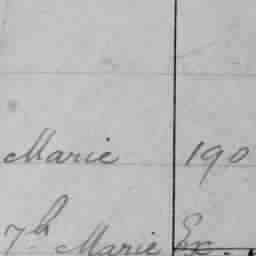 Marie 190
7h Marie Ex.